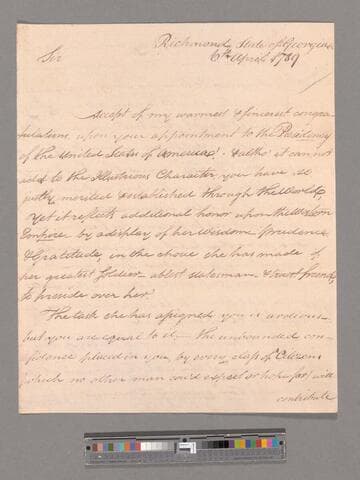 Richmond State of Georgia
6th April 1789
Sir
Accept of my warmest & sincerest congra
tulations upon your appointment to the Presidency
of the United States of America! & altho' it cannot
add to the Illustrious Character you have so
justly merited & established through the World,
Yet it reflects additional honor upon the Western
Empire by a display of her Wisdom Prudence
& Gratitude, in the choice she has made of
her greatest Soldier ablest statesman & truest friend
to preside over her.
The task she has assigned you is arduous
but you are equal to it. The unbounded con-
fidence placed in you, by every class of Citizens
which no other man could expect or hope for! will
contribute